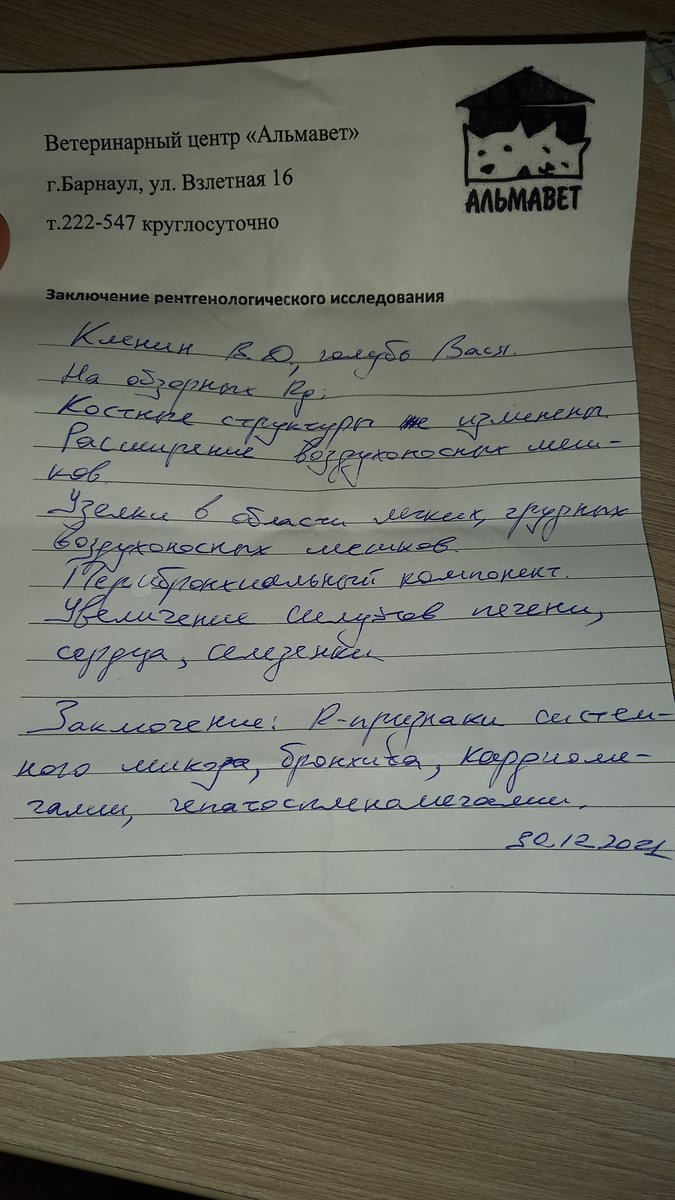 Ветеринарный центр «Альмавет»
г.Барнаул, ул. Взлетная 16
т.222-547 круглосуточно
АЛЬМАВЕТ
Заключение рентгенологического исследования
Кленин В.Ю, голубь Вася.
На обзорных Rg:
Костные структуры не изменены.
Расширение воздухоносных меш-
ков.
Узелки в области легких, грудных
воздухоносных мешков.
Перибронхиальный компонент.
Увеличение силуэтов печени,
сердца, селезенки
Заключение: R-признаки систем-
ного микоза, бронхита, кардиоме-
галии, гепатоспленомегалии.
30.12.2021